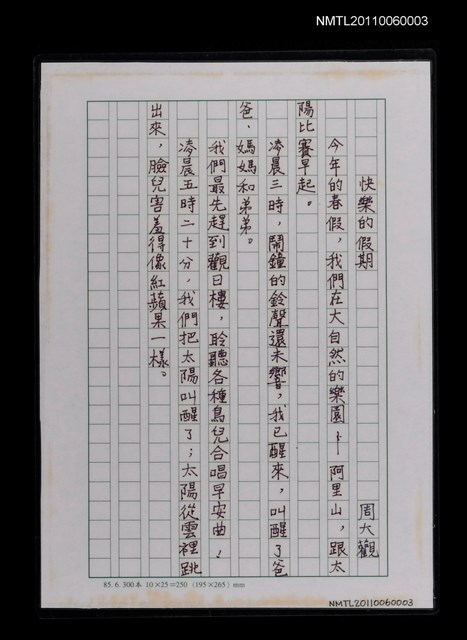 NMTL20110060003
快樂的假期
周大觀
今年的春假，我們在大自然的樂園──阿里山，跟太
陽比賽早起。
凌晨三時，鬧鐘的鈴聲還未響，我已醒來，叫醒了爸
爸、媽媽和弟弟。
我們最先趕到觀日樓，聆聽各種鳥兒合唱早安曲！
凌晨五時二十分，我們把太陽叫醒了；太陽從雲裡跳
出來，臉兒害羞得像紅蘋果一樣。
85. 6. 300本 10×25＝250 (195×265) mm
NMTL20110060003